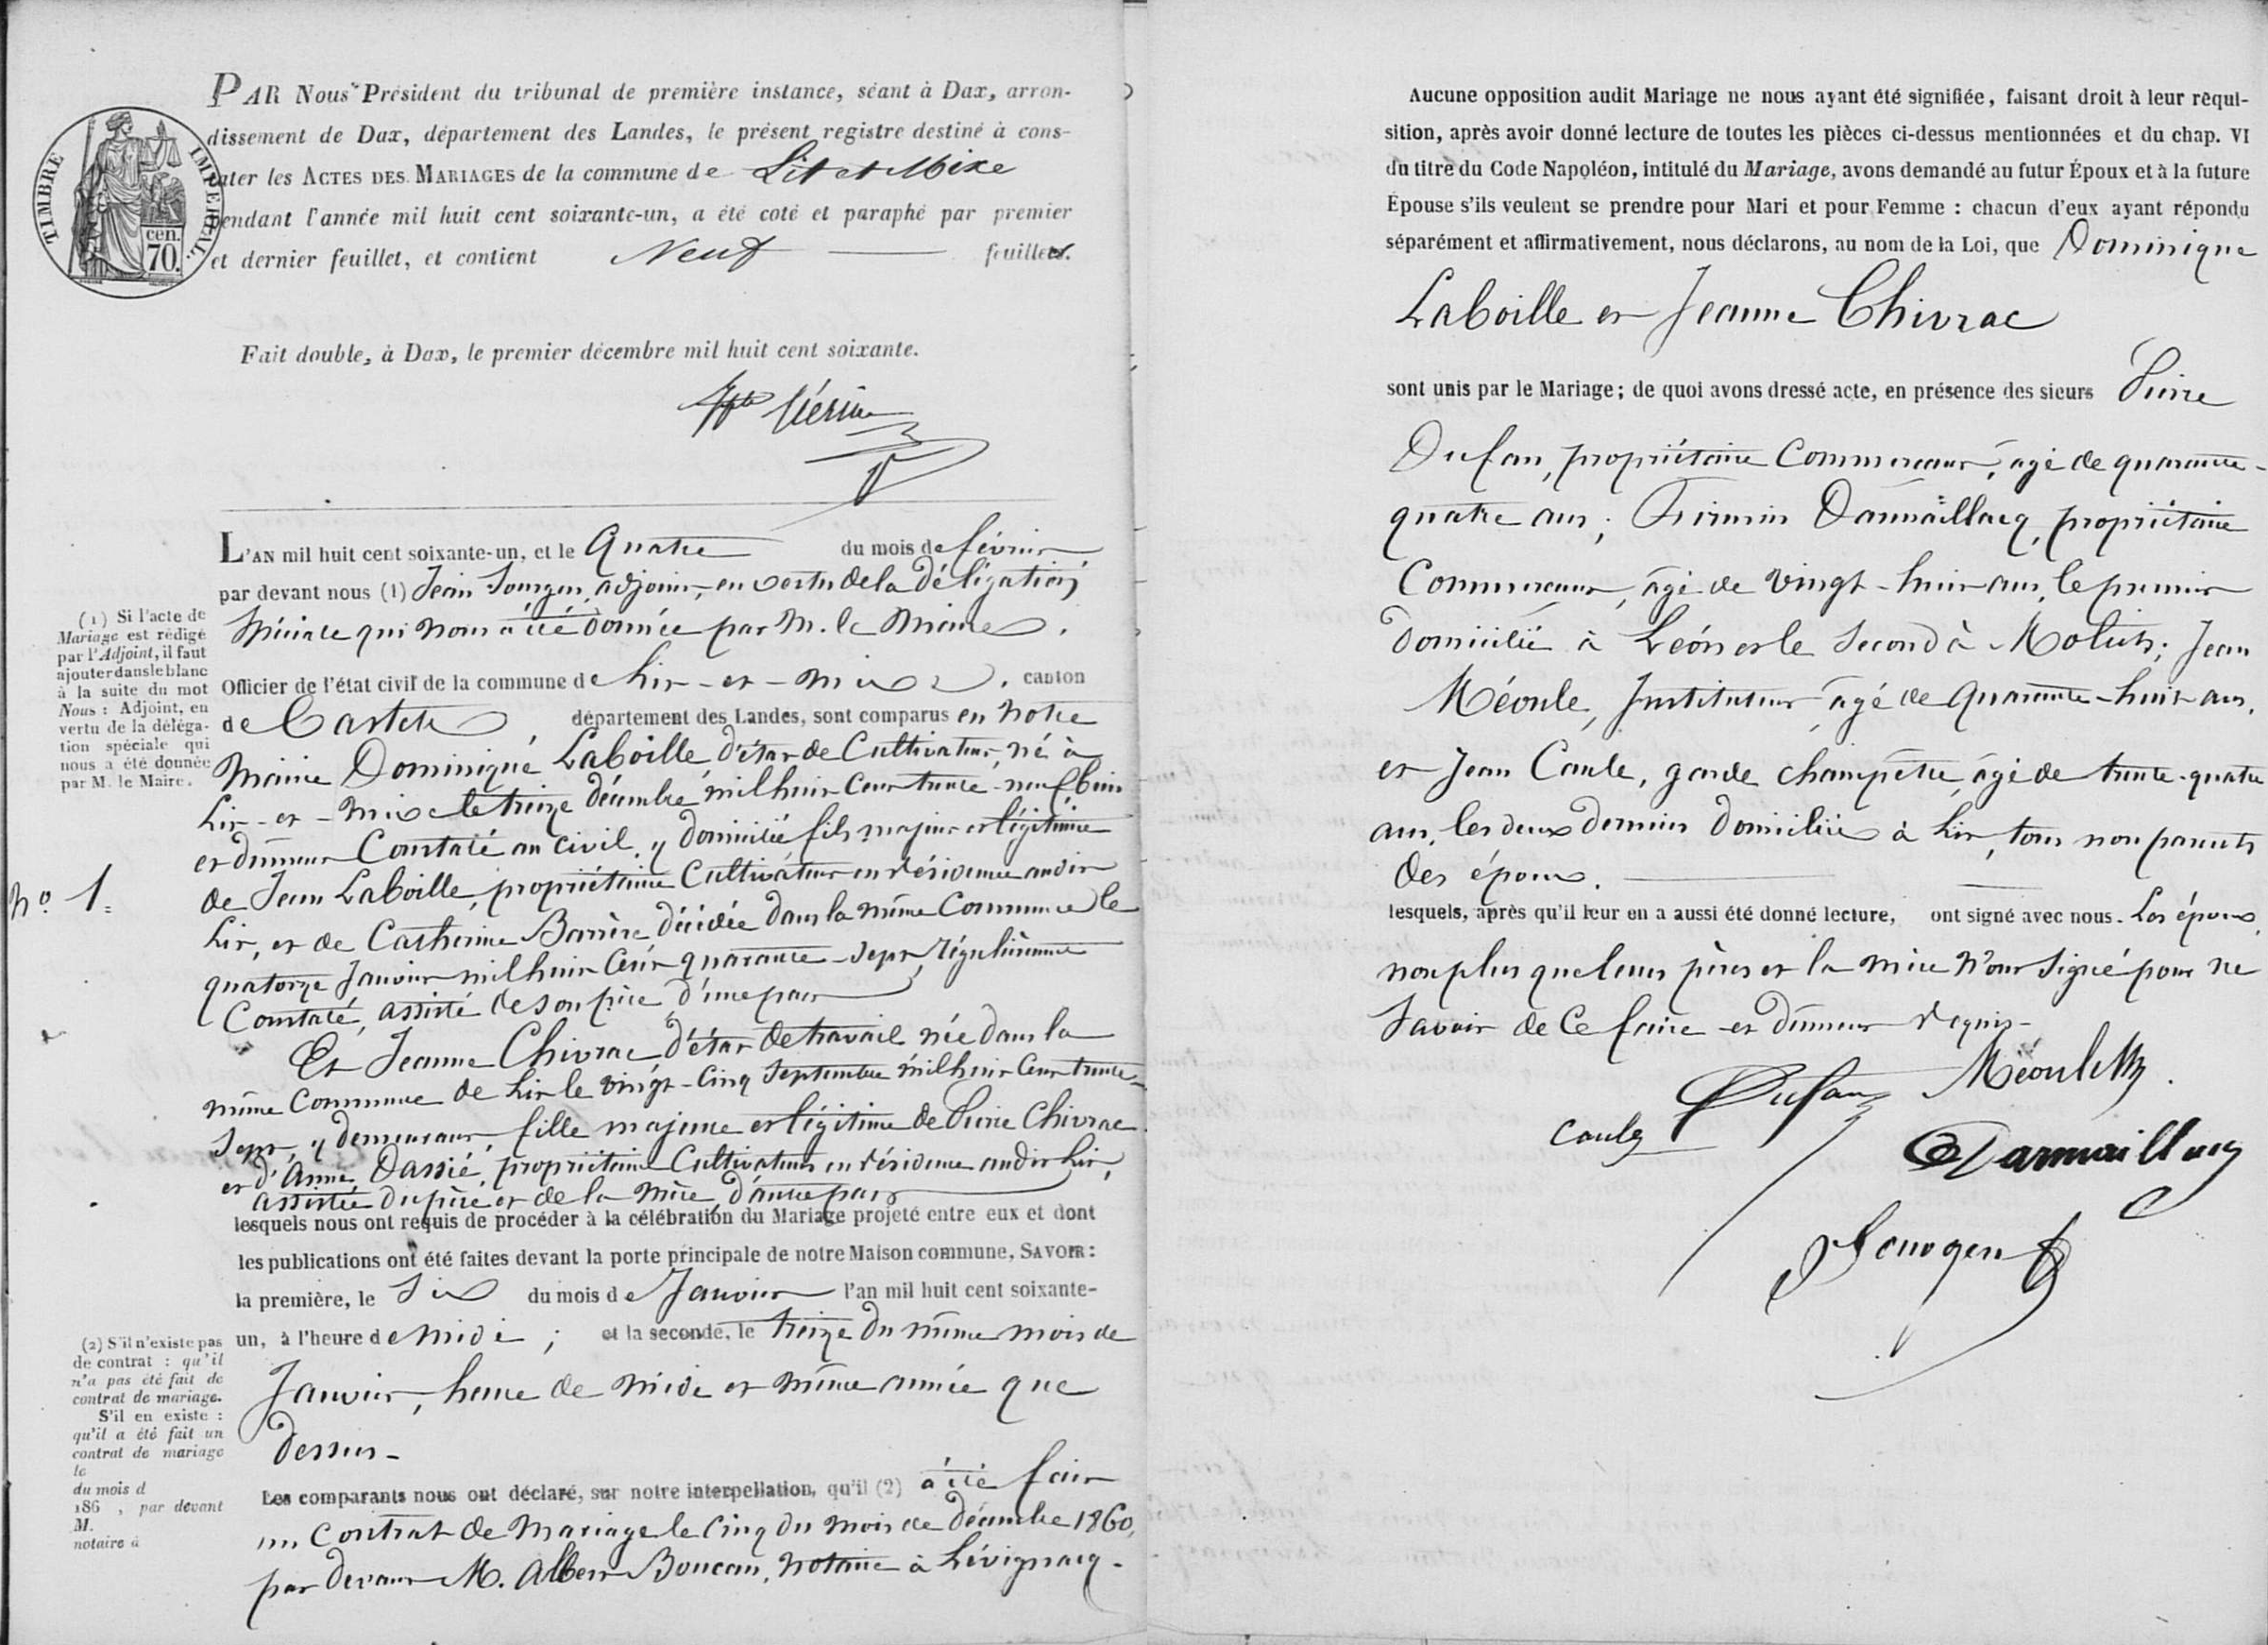 PAR Nous Président du tribunal de première instance, séant à Dax, arron-
dissement de Dax, département des Landes, le présent registre destiné à cons-
tater les ACTES DES MARIAGES de la commune de Lit et Mixe
pendant l'année mil huit cent soixante-un, a été coté et paraphé par premier
et dernier feuillet, et contient Neuf feuillets.
TIMBRE IMPERIAL
cen.
70.
Fait double, à Dax, le premier décembre mil huit cent soixante.
L'AN mil huit cent soixante-un, et le Quatre du mois de février
par devant nous (1) Jean Sourgen, adjoint, en vertu de la délégation
spéciale qui nous a été donnée par M. le Maire.
Officier de l'état civil de la commune de Lit-et-Mixe, canton
de Castets, département des Landes, sont comparus en notre
Mairie Dominique Laboille, d'état de Cultivateur, né à
Lit-et-Mixe le treize décembre mil huit cent trente-neuf, bien
et dûment Constaté au civil, y domicilié, fils majeur et légitime
de Jean Laboille, propriétaire Cultivateur en résidence audit
Lit, et de Catherine Barrère décédée dans la même Commune le
quatorze Janvier mil huit cent quarante-sept, régulièrement
Constaté, assisté de son père, d'une part
Et Jeanne Chivrac d'état de travail née dans la
même Commune de Lit le vingt-cinq Septembre mil huit cent trente-
sept, y demeurant, fille majeure et légitime de Pierre Chivrac
et d'Anne Dassié, propriétaire Cultivateurs en résidence audit Lit,
assistée du père et de la mère, d'autre part
lesquels nous ont requis de procéder à la célébration du Mariage projeté entre eux et dont
les publications ont été faites devant la porte principale de notre Maison commune, SAVOIR:
la première, le Six du mois de Janvier l'an mil huit cent soixante-
un, à l'heure de midi ; et la seconde, le treize du même mois de
Janvier, heure de midi et même année que
dessus-
Les comparants nous ont déclaré, sur notre interpellation, qu'il (2) a été fait
un Contrat de Mariage le Cinq du mois de Décembre 1860,
par devant M. Albert Boucau, notaire à Lévignacq.
(1) Si l'acte de
Mariage est rédigé
par l'Adjoint, il faut
ajouter dans le blanc
à la suite du mot
Nous : Adjoint, en
vertu de la déléga-
tion spéciale qui
nous a été donnée
par M. le Maire.
No. 1.
(2) S'il n'existe pas
de contrat : qu'il
n'a pas été fait de
contrat de mariage.
S'il en existe :
qu'il a été fait un
contrat de mariage
le
du mois d
186 , par devant
M.
notaire à
Aucune opposition audit Mariage ne nous ayant été signifiée, faisant droit à leur réqui-
sition, après avoir donné lecture de toutes les pièces ci-dessus mentionnées et du chap. VI
du titre du Code Napoléon, intitulé du Mariage, avons demandé au futur Époux et à la future
Épouse s'ils veulent se prendre pour Mari et pour Femme : chacun d'eux ayant répondu
séparément et affirmativement, nous déclarons, au nom de la Loi, que Dominique
Laboille et Jeanne Chivrac
sont unis par le Mariage ; de quoi avons dressé acte, en présence des sieurs Pierre
Dufau, propriétaire Commerçant, âgé de quarante-
quatre ans ; Firmin Darmaillacq, propriétaire
Commerçant, âgé de vingt-huit ans, le premier
domicilié à Léon et le second à Moliets ; Jean
Méoule, Instituteur, âgé de quarante-huit ans,
et Jean Caule, garde champêtre, âgé de trente-quatre
ans, les deux derniers domiciliés à Lit, tous non parents
des époux.
lesquels, après qu'il leur en a aussi été donné lecture, ont signé avec nous. Les époux,
non plus que leurs pères et la mère n'ont signé pour ne
savoir de ce faire et dûment requis-
Dufau
Méoule
Caule
Darmaillacq
Sourgen